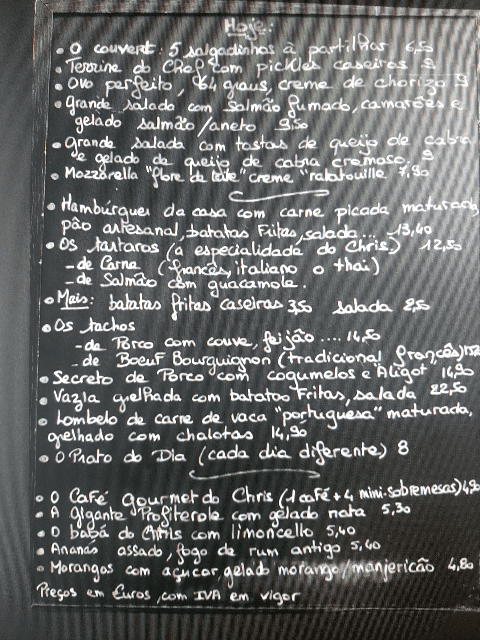 Hoje:
• O couvert: 5 salgadinhos à partilhar 6,50
• Terrine do Chef com pickles caseiros 9
• Ovo perfeito, 64 graus, creme de chorizo 9
• Grande salada com Salmão fumado, camarões e
gelado salmão/aneto 9,50
• Grande salada com tostas de queijo de cabra
e gelado de queijo de cabra cremoso. 9
• Mozzarella "fiore de late" creme "ratatouille" 7,90
• Hambúrguer da casa com carne picada maturada,
pão artesanal, batatas Fritas, salada... 13,40
• Os tartaros (a especialidade do Chris) 12,50
- de Carne (francês, italiano o thai)
- de Salmão com guacamole.
• Mais: batatas fritas caseiras 3,50 salada 2,50
• Os tachos
- de Porco com couve, feijão .... 14,50
- de Boeuf Bourguignon (tradicional francês)
• Secreto de Porco com cogumelos e Aligot 14,90
• Vazia grelhada com batatas Fritas, salada 22,50
• Lombelo de carre de vaca "portuguesa" maturada,
grelhado com chalotas 14,90
• O Prato do Dia (cada dia diferente) 8
• O Café gourmet do Chris (1 café + 4 mini-sobremesas) 4,90
• A Gigante Profiterole com gelado nata 5,30
• O babá do Chris com limoncello 5,40
• Ananas assado, fogo de rum antigo 5,40
• Morangos com açucar, gelado morango/manjericão 4,80
Preços em Euros, com IVA em vigor